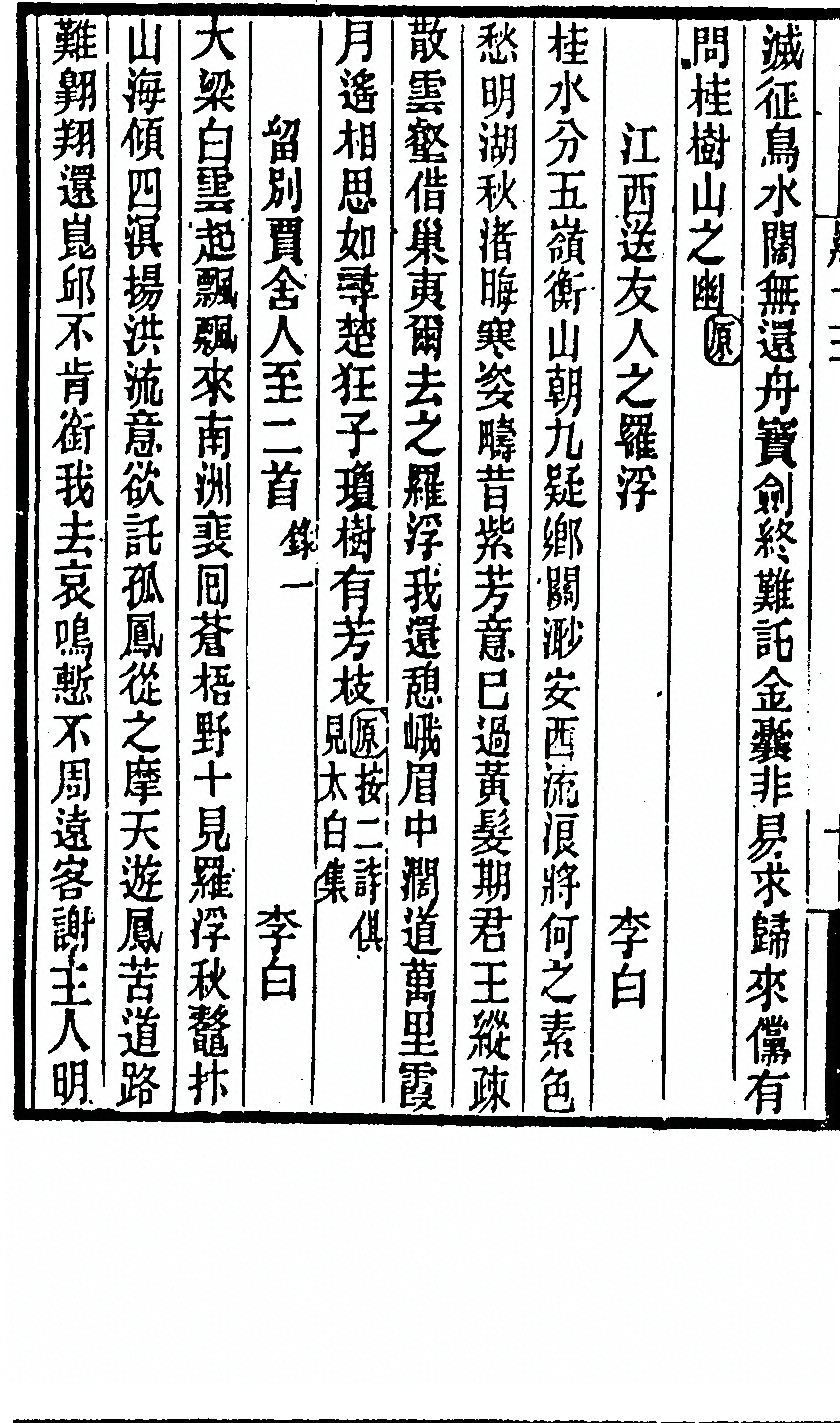 滅征鳥水闊無還舟寶劍終難託金囊非易求歸來儻有
問桂樹山之幽原
江西送友人之羅浮 李白
桂水分五嶺衡山朝九疑鄉關渺安西流浪將何之素色
愁明湖秋渚晦寒姿疇昔紫芳意已過黃髮期君王縱疎
散雲壑借巢夷爾去之羅浮我還憩峨眉中濶道萬里霞
月遙相思如尋楚狂子瓊樹有芳枝原按二詩俱見太白集
留別賈舍人至二首錄一 李白
大梁白雲起飄飄來南洲裴囘蒼梧野十見羅浮秋鼇抃
山海傾四溟揚洪流意欲託孤鳳從之摩天遊鳳苦道路
難翺翔還崑邱不肯銜我去哀鳴慙不周遠客謝主人明